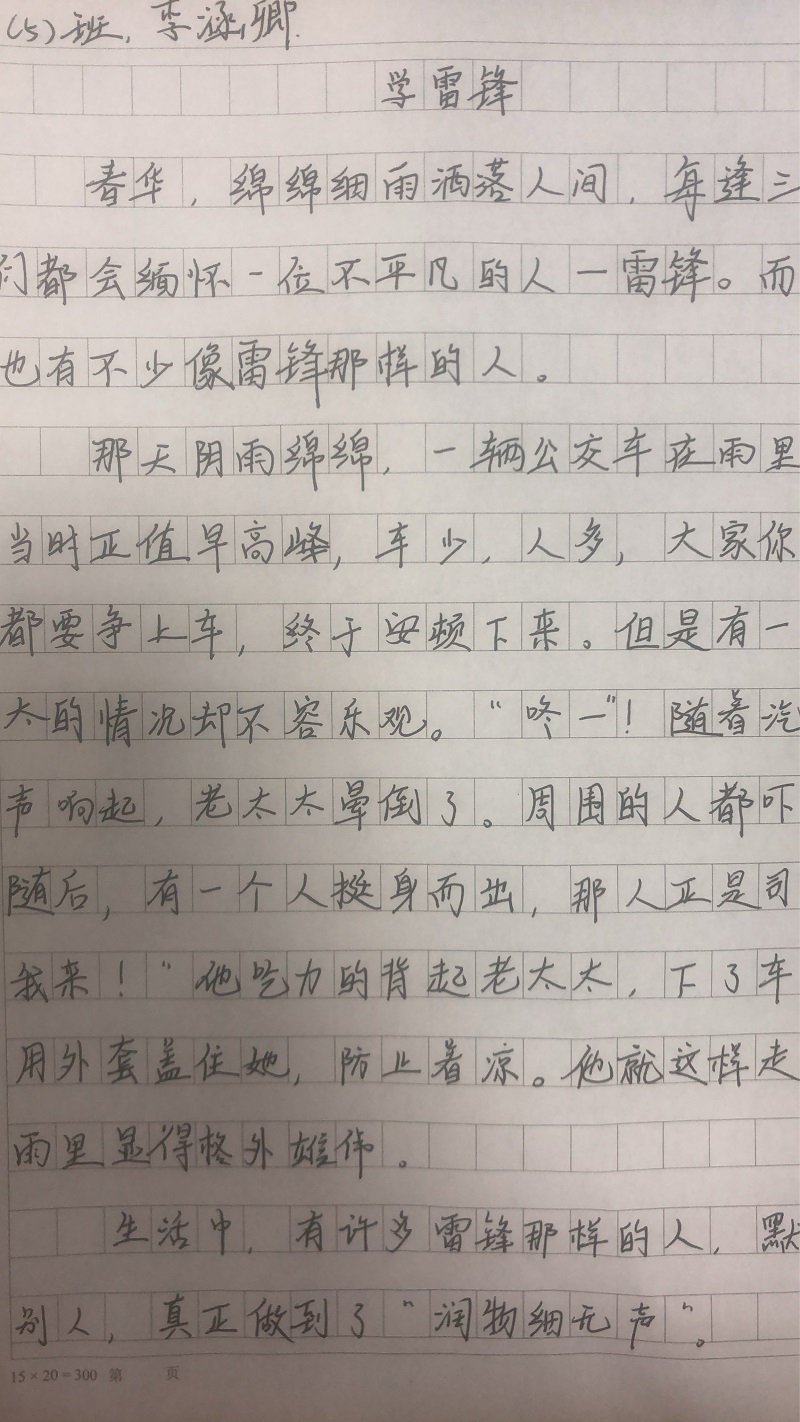 (5)班，李涵卿
学雷锋
春华，绵绵细雨洒落人间，每逢三
们都会缅怀一位不平凡的人一雷锋。而
也有不少像雷锋那样的人。
那天阴雨绵绵，一辆公交车在雨里
当时正值早高峰，车少，人多，大家你
都要争上车，终于安顿下来。但是有一
太的情况却不容乐观。“咚一”！随着汽
声响起，老太太晕倒了。周围的人都吓
随后，有一个人挺身而出，那人正是司
我来！”他吃力的背起老太太，下了车
用外套盖住她，防止着凉。他就这样走
雨里显得格外雄伟。
生活中，有许多雷锋那样的人，默
别人，真正做到了“润物细无声”。
15×20=300 第 页